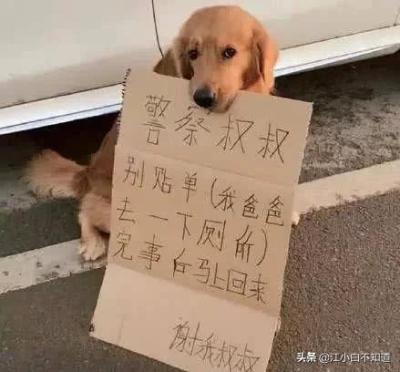 警察叔叔
别贴单(我爸爸
去一下厕所)
完事后马上回来
谢我叔叔
头条 @江小白不知道